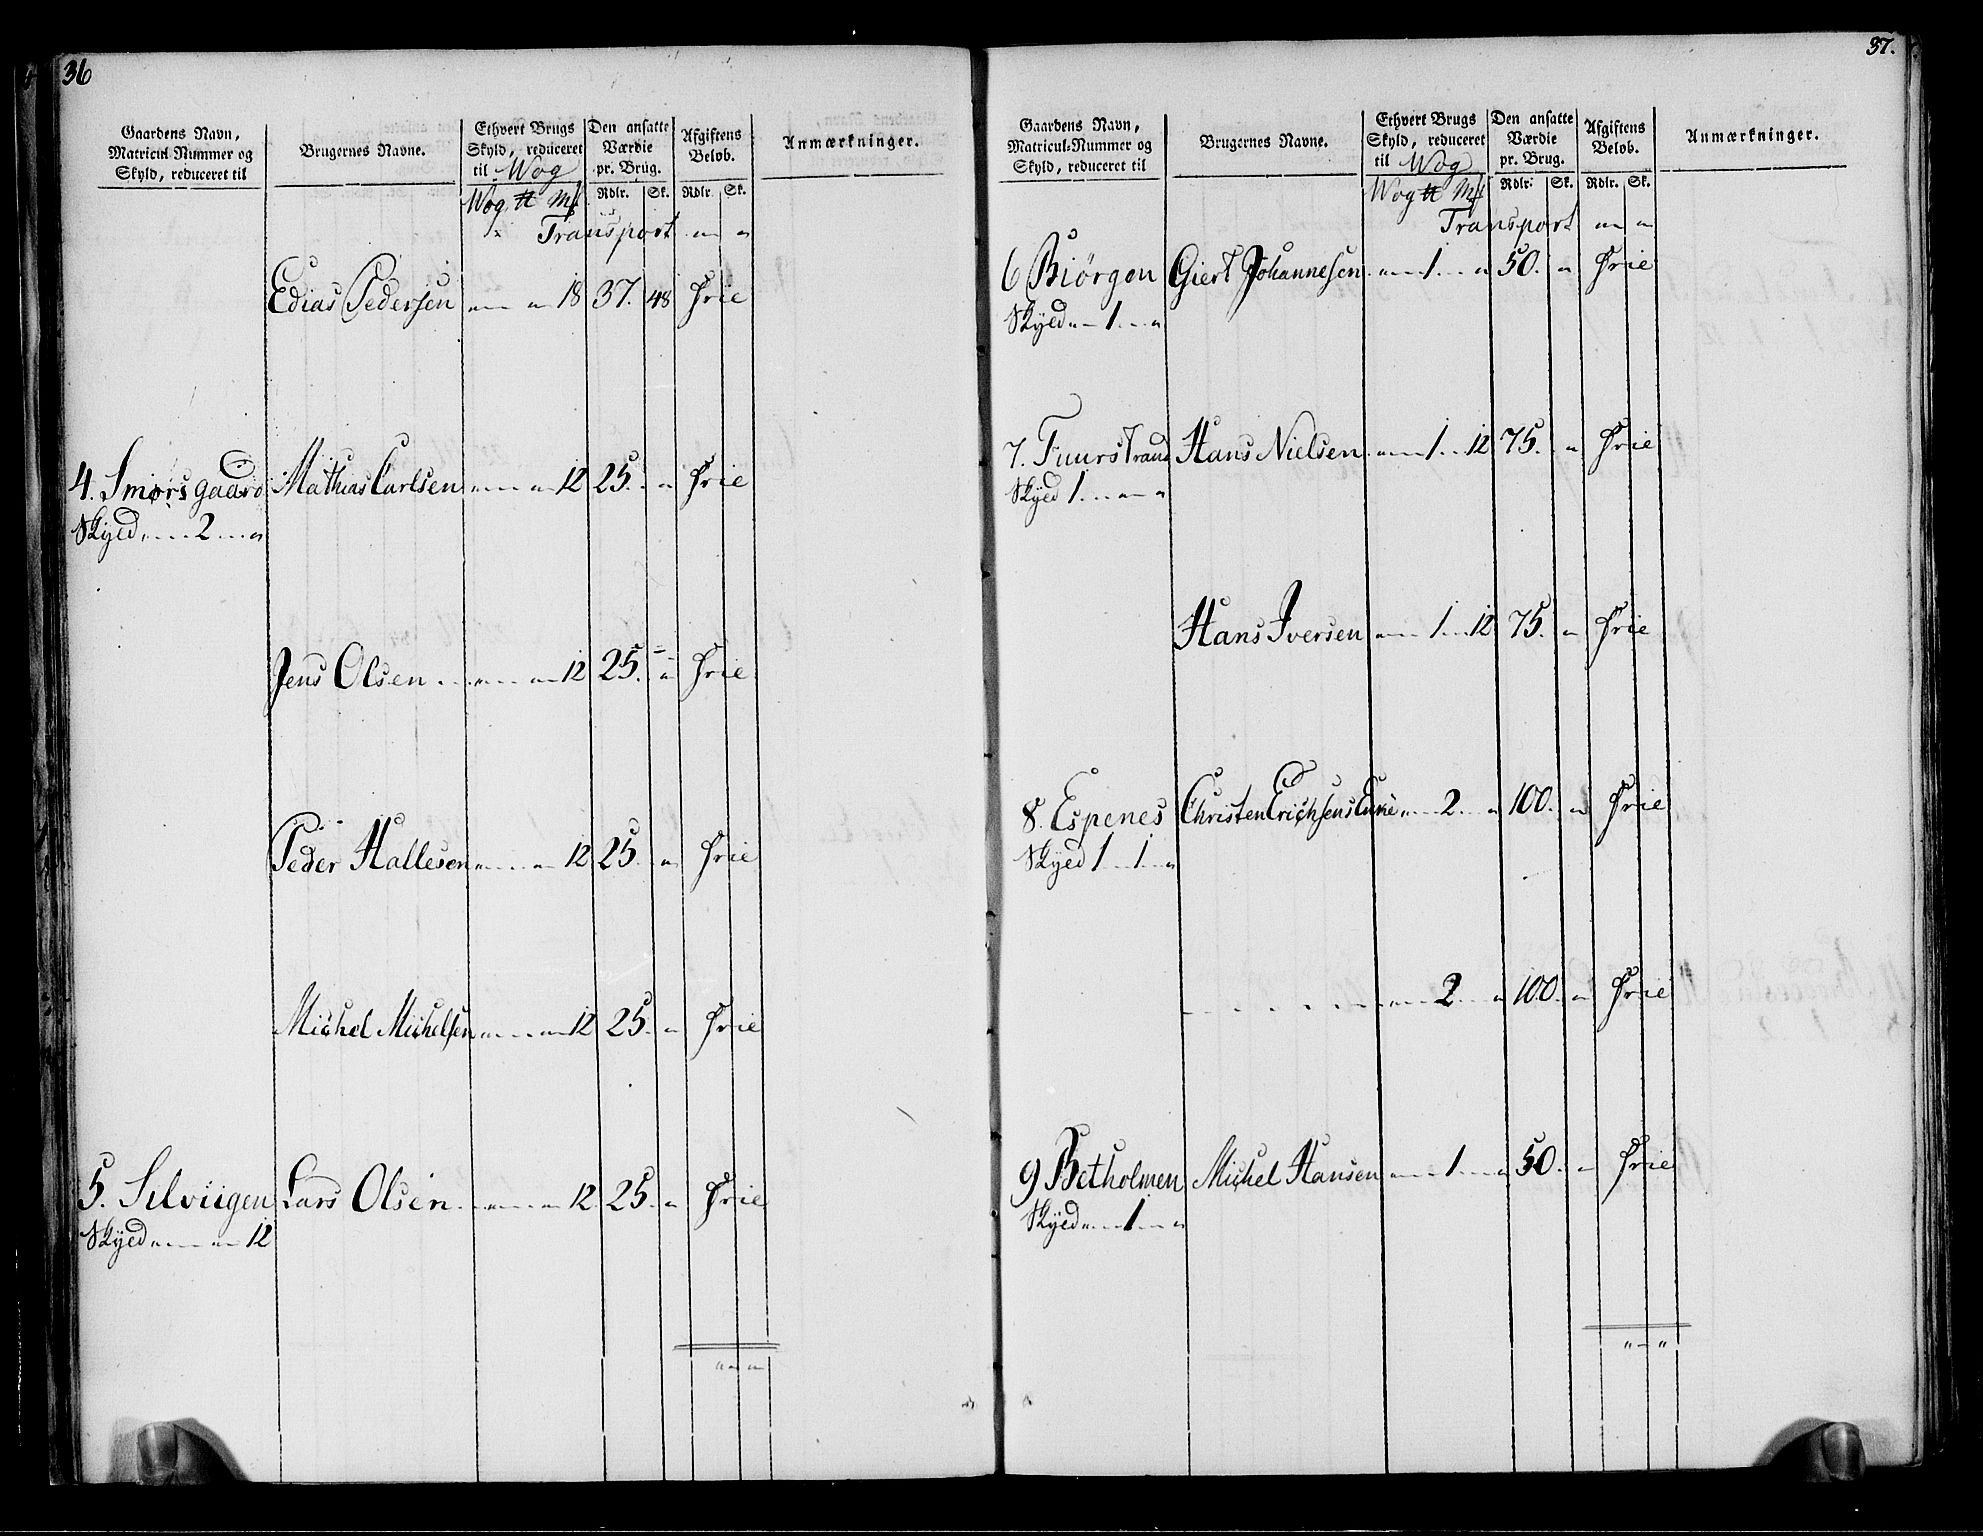 36
Gaardens Navn,
Matricul-Nummer og
Skyld, reduceret til
Brugernes Navne.
Ethvert Brugs
Skyld, reduceret
til Wog
Den ansatte
Værdie
pr. Brug.
Afgiftens
Beløb.
Anmærkninger.
Wog ℔ Mk Rdlr. Sk. Rdlr. Sk.
Transport " "
Edias Pedersen " " 18 37. 48 Frie
4. Smørsgaard Mathias Carlsen " " 12 25. " Frie
Skyld " 2 "
Jens Olsen " " 12 25. " Frie
Peder Hallesen " " 12 25. " Frie
Michel Michelsen " " 12 25. " Frie
5. Selviigen Lars Olsen " " 12 25. " Frie
Skyld " " 12
" "
37.
Gaardens Navn,
Matricul-Nummer og
Skyld, reduceret til
Brugernes Navne.
Ethvert Brugs
Skyld, reduceret
til Wog
Den ansatte
Værdie
pr. Brug.
Afgiftens
Beløb.
Anmærkninger.
Wog ℔ Mk Rdlr. Sk. Rdlr. Sk.
Transport " "
6 Biørgen Giert Johannesen " 1 " 50. " Frie
Skyld " 1 "
7. Fuurstrand Hans Nielsen " 1 12 75. " Frie
Skyld 1 " "
Hans Iversen " 1 12 75. " Frie
8. Espenes Christen Erichsens Enke " 2 " 100. " Frie
Skyld 1 1 "
" 2 " 100. " Frie
9 Betholmen Michel Hansen " 1 " 50. " Frie
Skyld " 1 "
" "